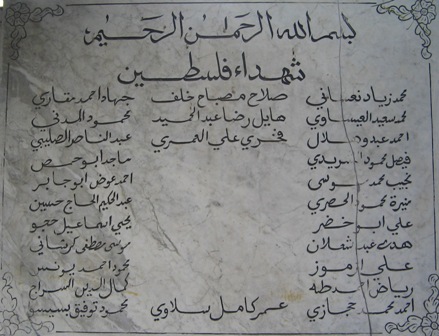 بسم الله الرحمن الرحيم
شهداء فلسطين
محمد زياد نعساني صلاح مصباح خلف جهاد احمد
محمد سعيد العيساوي هايل رضا عبد الحميد محمود المدني
احمد عبدو فخري علي العمري عبد الناصر الصليبي
فيصل محمود ماجد ابو حصر
نجيب محمد احمد عوض ابو جابر
محمود الحصري عبد الحكيم الحاج حسين
علي ابو خضر يحيى اسماعيل حجو
شعلان موسى مصطفى
علي موز محمود احمد يونس
رياض احمد طه كمال الدين السراج
احمد محمد حجازي عمر كامل سلاوي محمود توفيق بسيسو